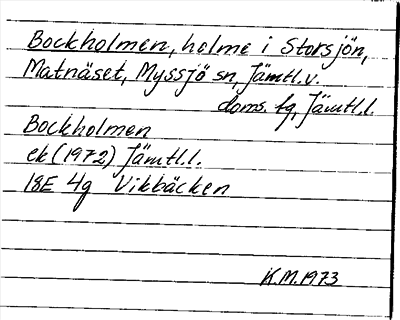 Bockholmen, holme i Storsjön,
Matnäset, Myssjö sn, Jämtl.v.
doms. fg, Jämtl.l.
Bockholmen
ek (1972) Jämtl.l.
18E 4g Vikbäcken
K.M.1973